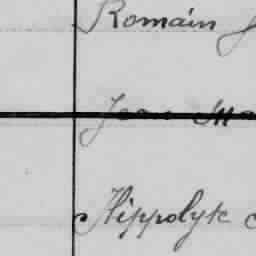 Romain J
Jean Ma
Hippolyte